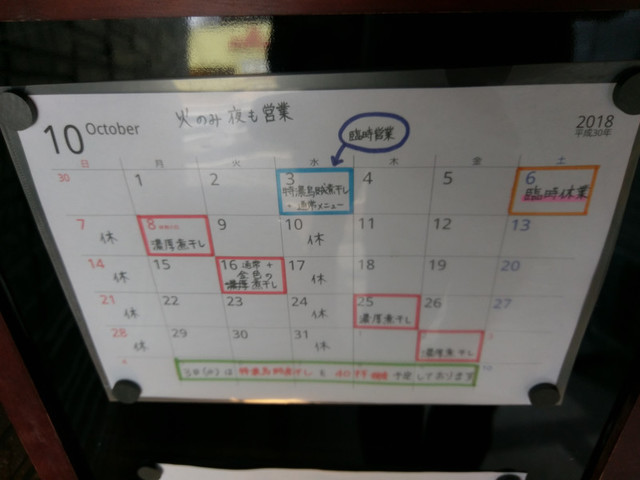 10 October
火のみ 夜も営業
臨時営業
2018
平成30年
日 月 火 水 木 金 土
30 1 2 3 4 5 6
特濃鳥豚煮干し
+通常メニュー
臨時休業
7 8 9 10 11 12 13
休 濃厚煮干し 休
14 15 16 17 18 19 20
通常+
金色の
濃厚煮干し
休 休
21 22 23 24 25 26 27
休 休 濃厚煮干し
28 29 30 31
休 休 濃厚煮干し
3日(水)は 特濃鳥豚煮干し を 予定しております